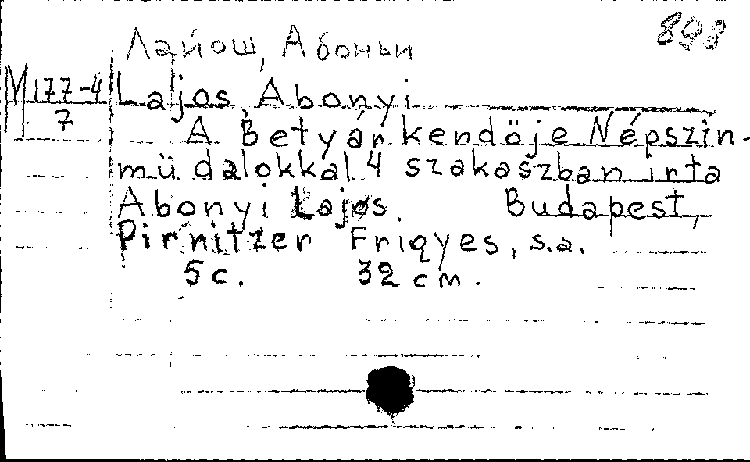 898
Лайош, Абоньи
M177-4/7
Lajos, Abonyi
A Betyár kendöje Népszin-
mü dalokkal 4 szakaszban irta
Abonyi Lajos. Budapest,
Pirnitzer Friqyes, s.a.
5 c. 32 cm.